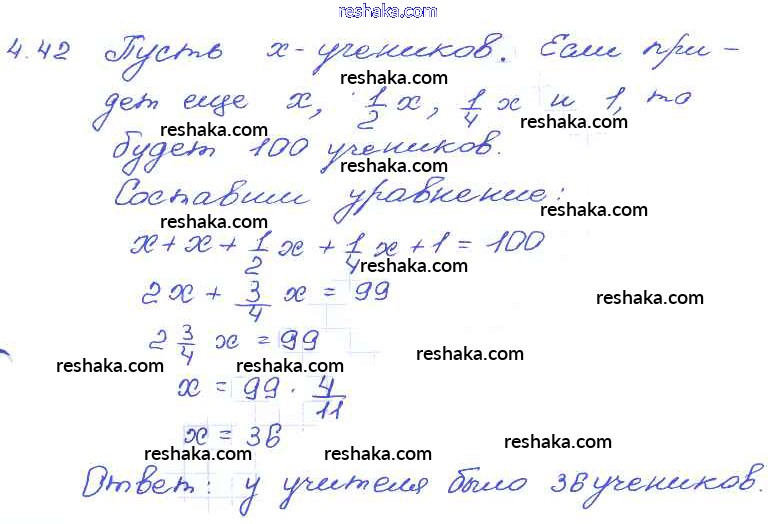 reshaka.com
4.42 Пусть x - учеников. Если при-
reshaka.com
дет еще x, 1/2 x, 1/4 x и 1, то
reshaka.com reshaka.com
будет 100 учеников.
reshaka.com
Составим уравнение:
reshaka.com reshaka.com
x + x + 1/2 x + 1/4 x + 1 = 100
reshaka.com
2x + 3/4 x = 99
reshaka.com
2 3/4 x = 99
reshaka.com reshaka.com reshaka.com
x = 99 · 4/11
x = 36
reshaka.com reshaka.com reshaka.com
Ответ: у учителя было 36 учеников.